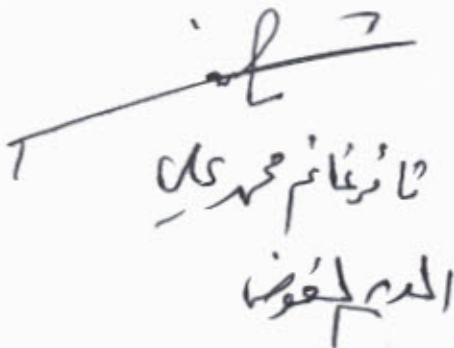 ثائر غانم محمد علي
المدير المفوض